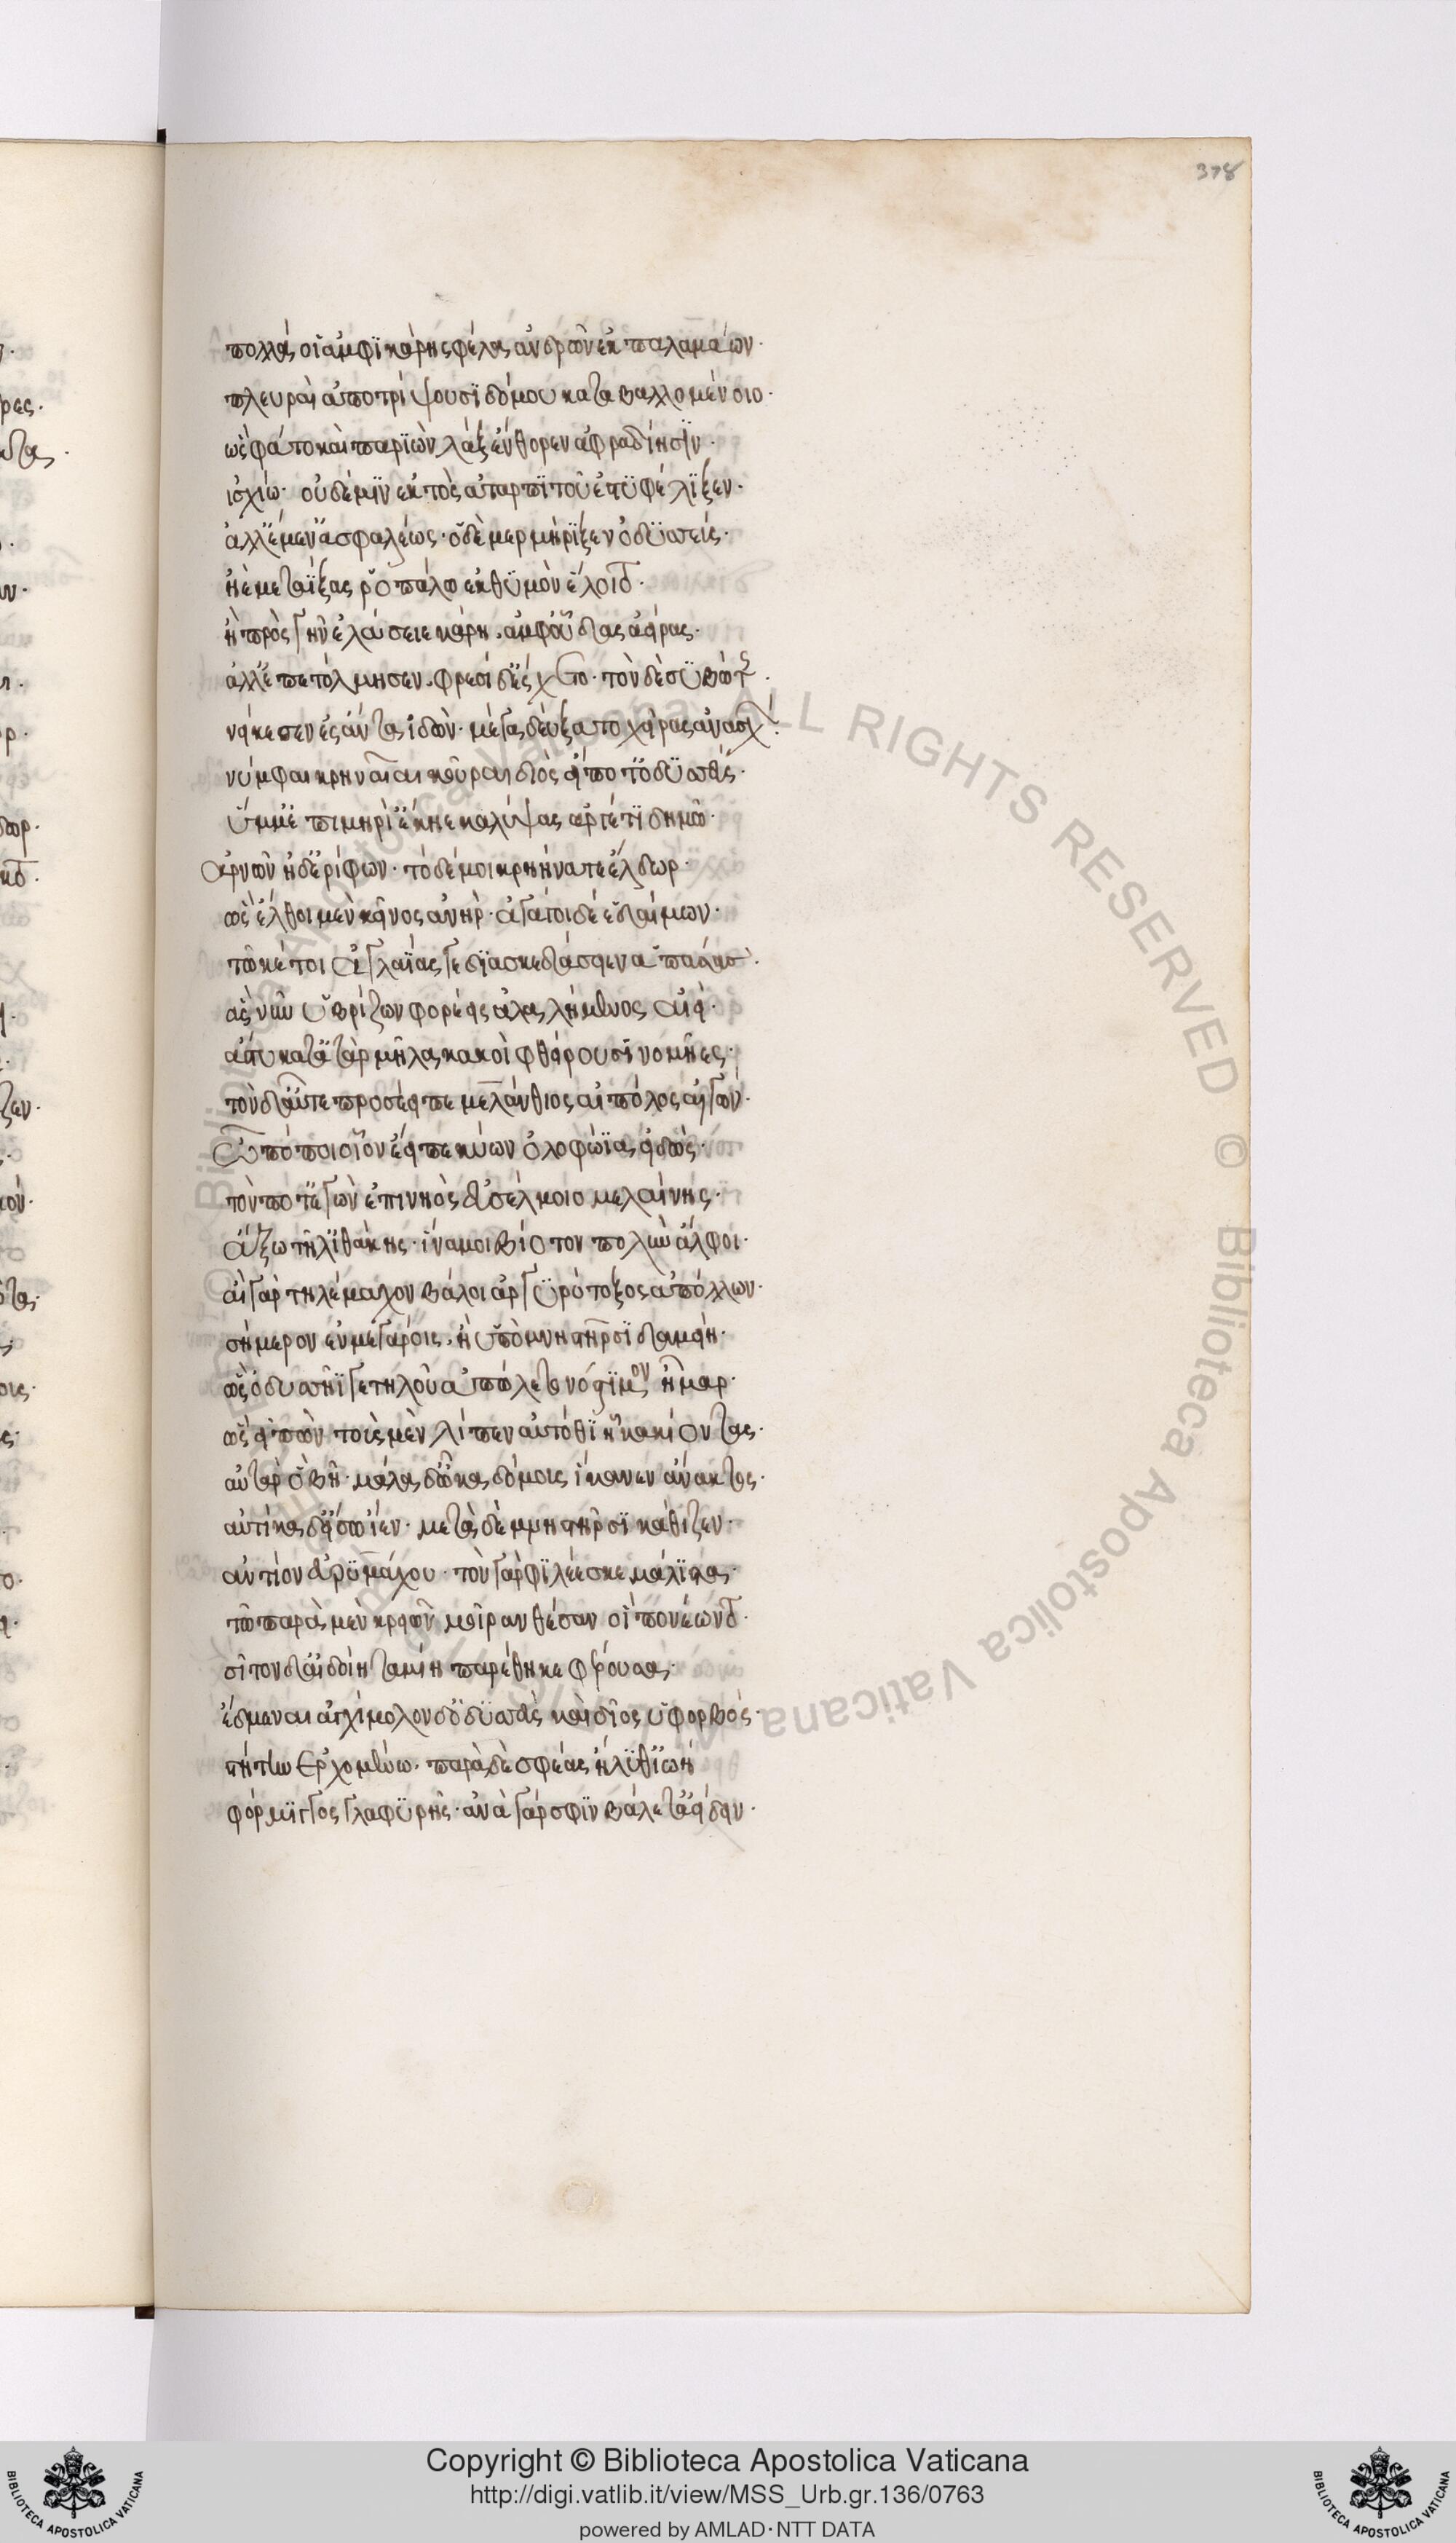 378
πολλά οἱ ἀμφὶ κάρη σφέλα ἀνδρῶν ἐκ παλαμάων·
πλευραὶ ἀποτρίψουσι δόμου κάτα βαλλομένοιο·
ὣς φάτο καὶ παριὼν λὰξ ἔνθορεν ἀφραδίῃσιν·
ἰσχίω· οὐδέ μιν ἐκτὸς ἀταρπιτοῦ ἐστυφέλιξεν·
ἀλλ' ἔμεν' ἀσφαλέως· ὁ δὲ μερμήριξεν ὀδυσσεύς·
ἠὲ μεταΐξας ῥοπάλω ἐκ θυμὸν ἕλοιτο·
ἢ πρὸς γῆν ἐλάσειε κάρη ἀμφουδὶς ἀείρας·
ἀλλ' ἐπετόλμησεν· φρεσὶ δ' ἔσχετο· τὸν δὲ συβώτης·
νείκεσεν ἐσάντα ἰδών· μέγα δ' εὔξατο χεῖρας ἀνασχών·
νύμφαι κρηναῖαι κοῦραι διὸς εἴποτ' ὀδυσσεύς·
ὔμμ' ἐπὶ μηρί' ἔκηε καλύψας ἀργέτι δημῶ·
ἀρνῶν ἠδ' ἐρίφων· τόδε μοι κρηήνατ' ἐέλδωρ·
ὡς ἔλθοι μὲν κεῖνος ἀνὴρ· ἀγάγοι δέ ἑ δαίμων·
τῶ κέ τοι ἀγλαΐας γε διασκεδάσειεν ἁπάσας·
ἃς νῦν ὑβρίζων φορέεις ἀλαλήμενος αἰεὶ·
ἄστυ κατ' αὐτὰρ μῆλα κακοὶ φθείρουσι νομῆες·
τὸν δ' αὖτε προσέειπε μελάνθιος αἰπόλος αἰγῶν·
ὢ πόποι οἷον ἔειπε κύων ὀλοφώϊα εἰδώς·
τόν ποτ' ἐγὼν ἐπὶ νηὸς ἐϋσσέλμοιο μελαίνης·
ἄξω τῆλ' ἰθάκης· ἵνα μοι βίοτον πολὺν ἄλφοι·
αἲ γὰρ τηλέμαχον βάλοι ἀργυρότοξος ἀπόλλων·
σήμερον ἐν μεγάροις· ἢ ὑπὸ μνηστῆρσι δαμείη·
ὡς ὀδυσῆΐ γε τηλοῦ ἀπώλετο νόστιμον ἦμαρ·
ὣς εἰπὼν τοὺς μὲν λίπεν αὐτόθι ἦκα κιόντας·
αὐτὰρ ὁ βῆ· μάλα δ' ὦκα δόμους ἵκανεν ἄνακτος·
αὐτίκα δ' εἴσω ἴεν· μετὰ δὲ μνηστῆρσι κάθιζεν·
ἀντίον εὐρυμάχου· τὸν γὰρ φιλέεσκε μάλιστα·
τῶ παρὰ μὲν κρειῶν μοῖραν θέσαν οἳ πονέοντο·
σῖτον δ' αἰδοίη ταμίη παρέθηκε φέρουσα·
ἔδμεναι ἀγχίμολον δ' ὀδυσεὺς καὶ δῖος ὑφορβός·
στήτην ἐρχομένω· παρὰ δὲ σφέας ἤλυθ' ἰωὴ
φόρμιγγος γλαφυρῆς· ἀνὰ γάρ σφιν βάλετ' ἀείδειν·
Copyright © Biblioteca Apostolica Vaticana
http://digi.vatlib.it/view/MSS_Urb.gr.136/0763
powered by AMLAD·NTT DATA